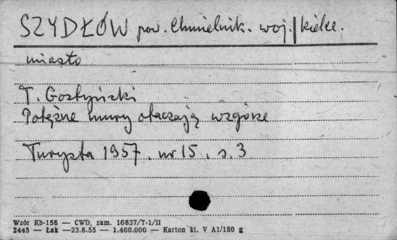 SZYDŁÓW pow. Chmielnik. woj. kielce.
miasto
T. Gostyński
Potężne mury otaczają wzgórze
Turysta 1957. nr 15, s. 3
Wzór Kb-156 — CWD, zam. 10837/T-1/II
2445 — Łak —23.8.55 — 1.460.000 — Karton kl. V A1/180 g